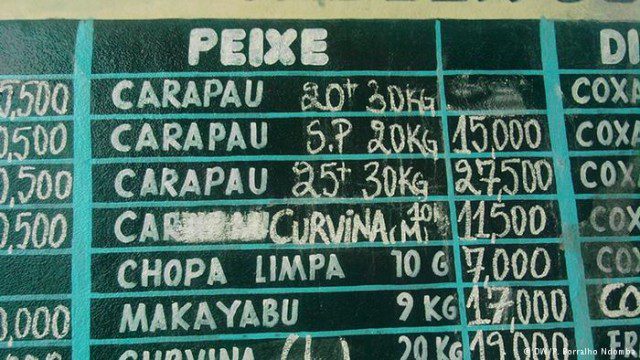 PEIXE DI
0,500 CARAPAU 20+ 30KG COXA
0,500 CARAPAU S.P 20KG 15,000 COXA
0,500 CARAPAU 25+ 30KG 27,500 COX
0,500 CAR CURVINA (M) 10K 11,500 COX
CHOPA LIMPA 10 G 7,000 COX
0,000 MAKAYABU 9 KG 17,000 CO
CURVINA 20KG 19,000
© DW/P. Borralho Ndomba